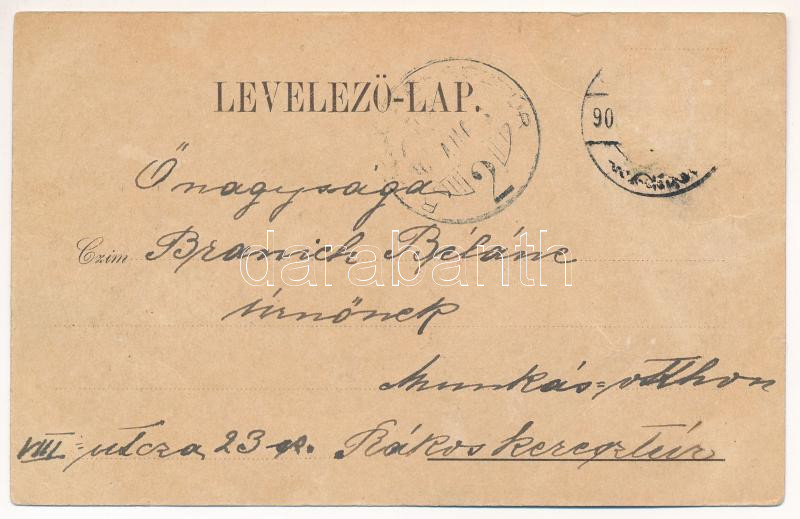 LEVELEZÖ-LAP.
90
2
Őnagysága
Czim Branich Béláné
úrnőnek
darabanth
Munkás=otthon
VIII=utcza 23 sz. Rákoskeresztúr